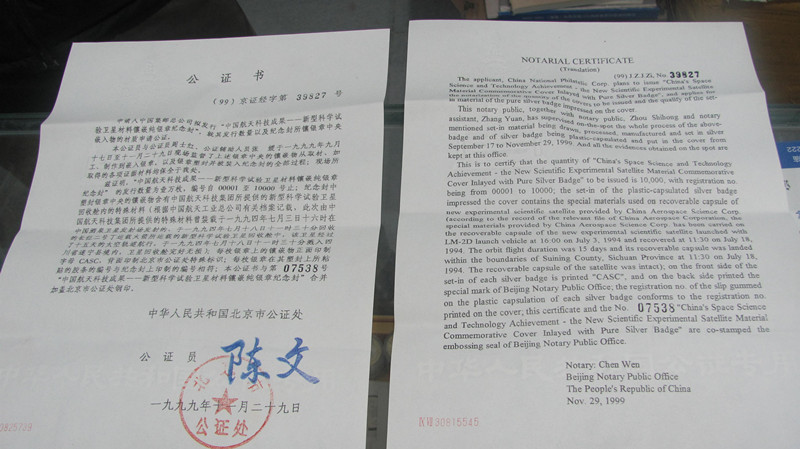 公证书
(99) 京证经字第 39827 号
申请人中国集邮总公司拟发行“中国航天科技成果——新型科学试
验卫星材料镶嵌纯银章纪念封”，就其发行数量以及纪念封所镶银章中央
嵌入物的封装申请公证。
本公证员与公证员周士红、公证辅助人员张 于一九九九年九月
十七日至十一月二十
工、制作到嵌入银章、以及银章塑封并被装入纪念封的全部过程；现场所
取得的各项证据材料均保全于我处。
兹证明，“中国航天科技成果——新型科学试验卫星材料镶嵌纯银章
纪念封”的发行数量为壹万枚，编号自 00001 至 10000 号止；纪念封中
塑封银章中央的镶嵌物含有中国航天科技集团所提供的新型科学试验卫星
回收舱内的特殊材料（根据中国航天工业总公司有关档案记载，此次由中
国航天科技集团所提供的特殊材料曾搭载于一九九四年七月三日十六时在
字母 CASC，背面印制北京市公证处特殊标识；每枚银章在其塑封上所粘
贴的胶条的编号与纪念封上印制的编号相符；本公证书与第 07538 号
“中国航天科技成果——新型科学试验卫星材料镶嵌纯银章纪念封”合并
加盖北京市公证处钢印。
中华人民共和国北京市公证处
公证员 陈文
北京市
公证处
一九九九年十一月二十九日
NOTARIAL CERTIFICATE
(Translation)
(99) J.Z.J.Zi, No. 39827
The applicant, China National Philatelic Corp. plans to issue "China's Space
Science and Technology Achievement - the New Scientific Experimental Satellite
Material Commemorative Cover Inlayed with Pure Silver Badge", and applies for
the notarization of the quantity of the covers to be issued and the quality of the set-
in material of the pure silver badge impressed on the cover.
This notary public, together with notary public, Zhou Shihong and notary
assistant, Zhang Yuan, has supervised on-the-spot the whole process of the above-
mentioned set-in material being drawn, processed, manufactured and set in silver
badge and of silver badge being plastic-capsulated and put in the cover from
September 17 to November 29, 1999. And all the evidences obtained on the spot are
kept at this office.
This is to certify that the quantity of "China's Space Science and Technology
Achievement - the New Scientific Experimental Satellite Material Commemorative
Cover Inlayed with Pure Silver Badge" to be issued is 10,000, with registration no.
being from 00001 to 10000; the set-in of the plastic-capsulated silver badge
impressed the cover contains the special materials used on recoverable capsule of
new experimental scientific satellite provided by China Aerospace Science Corp.
(according to the record of the relevant file of China Aerospace Corporation, the
special materials provided by China Aerospace Science Corp. has been carried on
the recoverable capsule of the new experimental scientific satellite launched with
LM-2D launch vehicle at 16:00 on July 3, 1994 and recovered at 11:30 on July 18,
1994. The orbit flight duration was 15 days and its recoverable capsule was landed
within the boundaries of Suining County, Sichuan Province at 11:30 on July 18,
1994. The recoverable capsule of the satellite was intact), on the front side of the
set-in of each silver badge is printed "CASC", and on the back side is printed the
special mark of Beijing Notary Public Office, the registration no. of the slip gummed
on the plastic capsulation of each silver badge conforms to the registration no.
printed on the cover; this certificate and the No. 07538 "China's Space Science
and Technology Achievement - the New Scientific Experimental Satellite Material
Commemorative Cover Inlayed with Pure Silver Badge" are co-stamped the
embossing seal of Beijing Notary Public Office.
Notary: Chen Wen
Beijing Notary Public Office
The People's Republic of China
Nov. 29, 1999
30615545